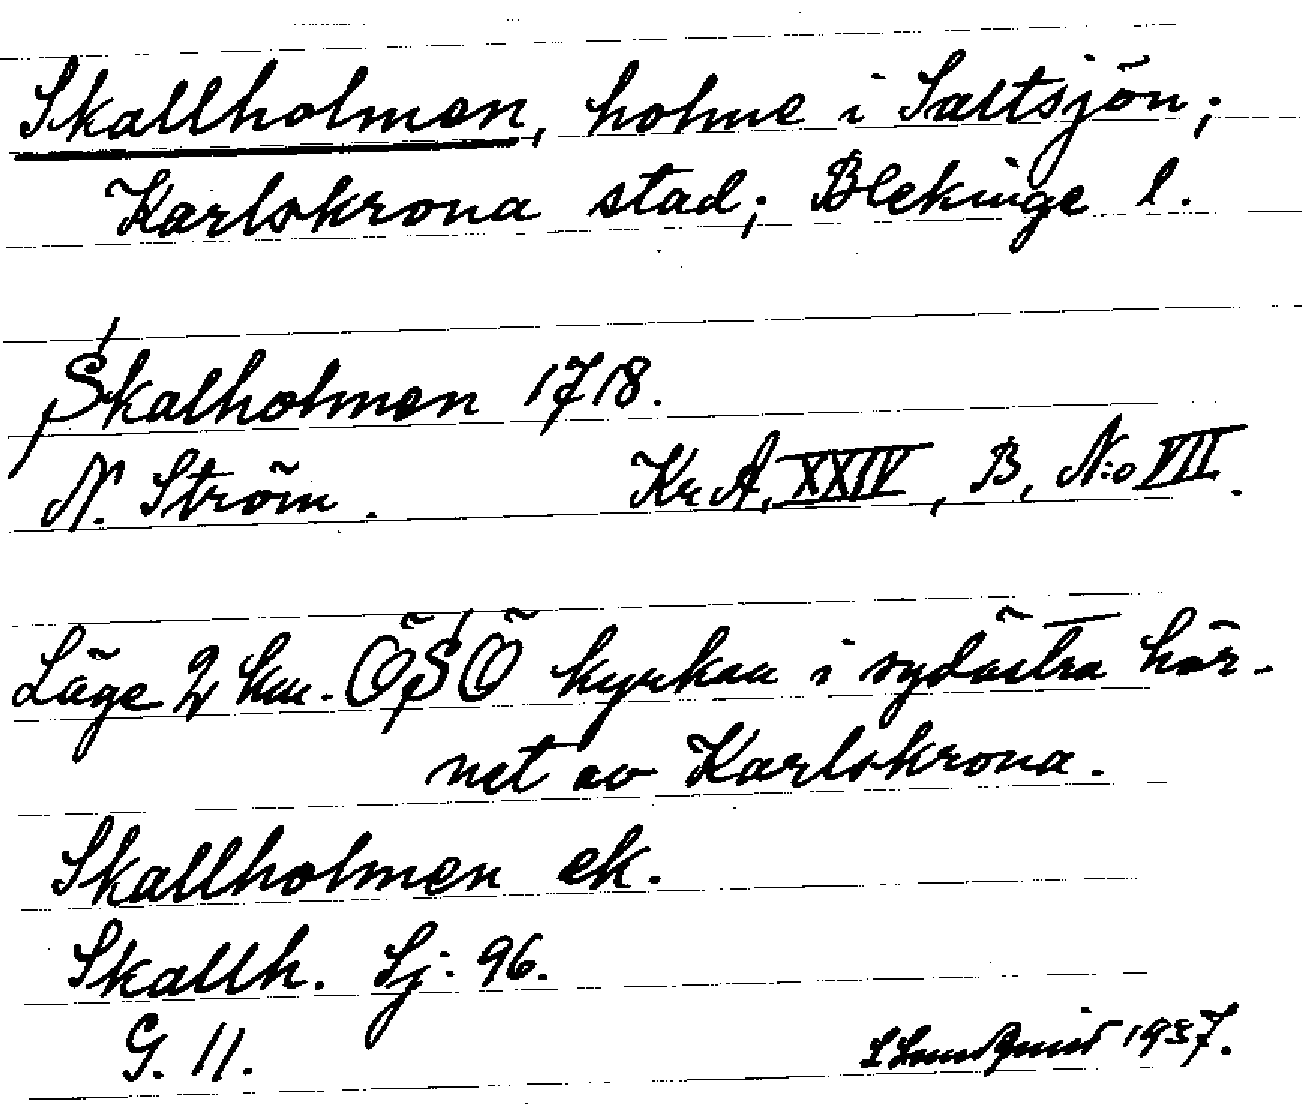 Skallholmen, holme i Saltsjön;
Karlskrona stad; Blekinge l.
Skalholmen 1718.
N. Ström. Kr. A, XXIV, B, N:o VII.
Läge 2 km. ÖSÖ kyrkan i sydöstra hör-
net av Karlskrona.
Skallholmen ek.
Skallh. Sj: 96.
G. 11. Lundquist 1937.